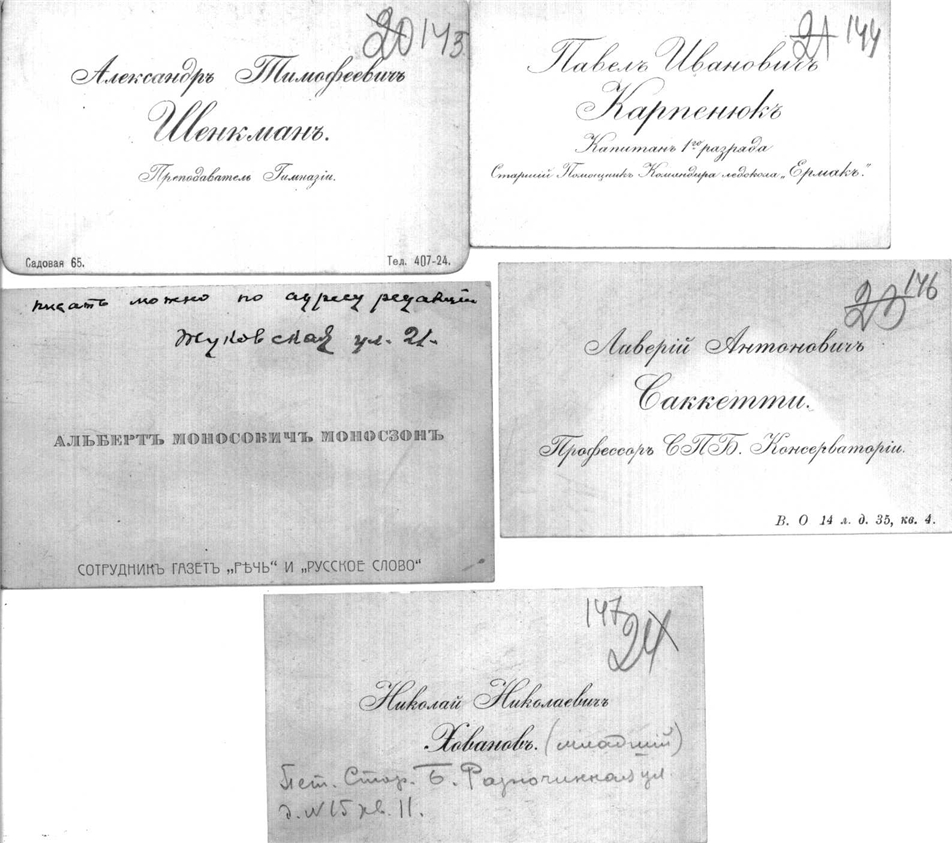 20 145
Александръ Тимофеевичъ
Шенкманъ.
Преподаватель Гимназіи.
Садовая 65.
Тел. 407-24.
21 144
Павелъ Ивановичъ
Карпенюкъ
Капитанъ 1го разряда
Старшій Помощникъ Командира ледокола „Ермакъ.“
писать можно по адресу редакціи
Жуковская ул. 21.
АЛЬБЕРТЪ МОНОСОВИЧЪ МОНОСЗОНЪ
СОТРУДНИКЪ ГАЗЕТЪ „РѢЧЬ“ И „РУССКОЕ СЛОВО“
146
Ливерій Антоновичъ
Саккетти.
Профессоръ СПБ. Консерваторіи.
В. О 14 л. д. 35, кв. 4.
147
24
Николай Николаевичъ
Ховановъ. (младшій)
Пет. Стор. Б. Разночинная ул
д. № 15 кв. 11.